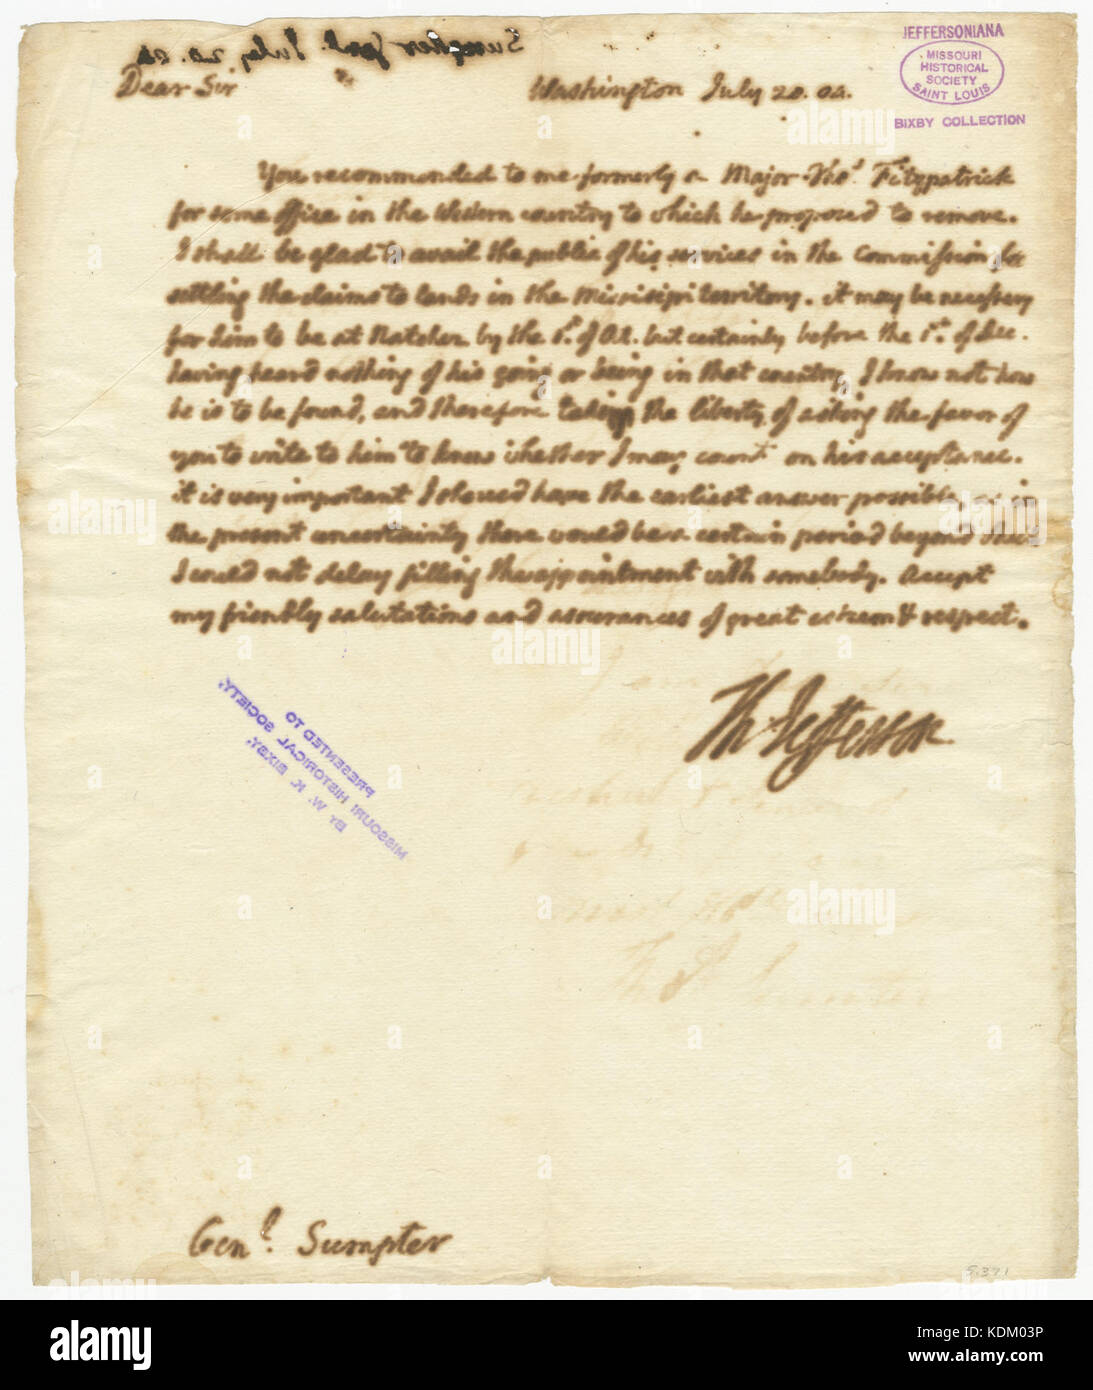 Sumpter Genl. July 20. 04
JEFFERSONIANA
MISSOURI
HISTORICAL
SOCIETY
SAINT LOUIS
BIXBY COLLECTION
Dear Sir
Washington July 20. 04.
You recommended to me formerly a Major Thos. Fitzpatrick
for some office in the Western country to which he proposed to remove.
I shall be glad to avail the public of his services in the commission for
settling the claims to lands in the Missisipi territory. it may be necessary
for him to be at Natchez by the 1st. of Oct. but certainly before the 1st. of Dec.
having heard nothing of his going or being in that country, I know not how
he is to be found, and therefore taking the liberty of asking the favor of
you to write to him to know whether I may count on his acceptance.
it is very important I should have the earliest answer possible, as in
the present uncertainty there would be a certain period beyond which
I could not delay filling the appointment with somebody. Accept
my friendly salutations and assurances of great esteem & respect.
Th Jefferson
PRESENTED TO
MISSOURI HISTORICAL SOCIETY,
BY W. K. BIXBY.
Genl. Sumpter
alamy
a
alamy
Image ID: KDM03P
www.alamy.com